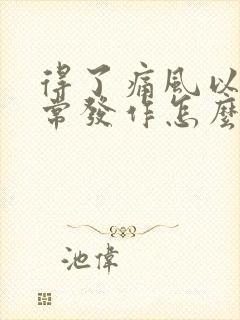 得了痛风以
常發作怎麼
池偉